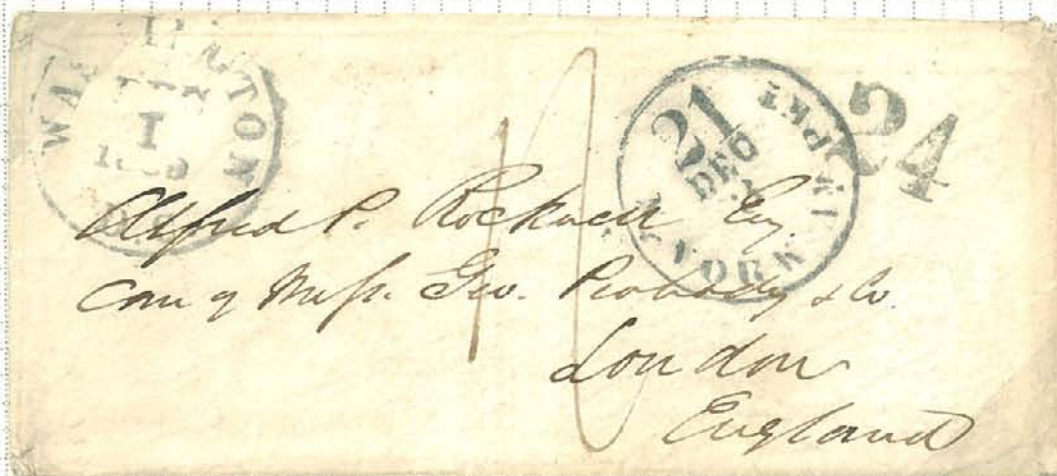 WASHINGTON
DEC
1
D.C.
21
DEC
YORK
AM PKT
24
Alfred P. Rockwell Esq.
Care of Messrs. Geo. Peabody & Co.
London
England